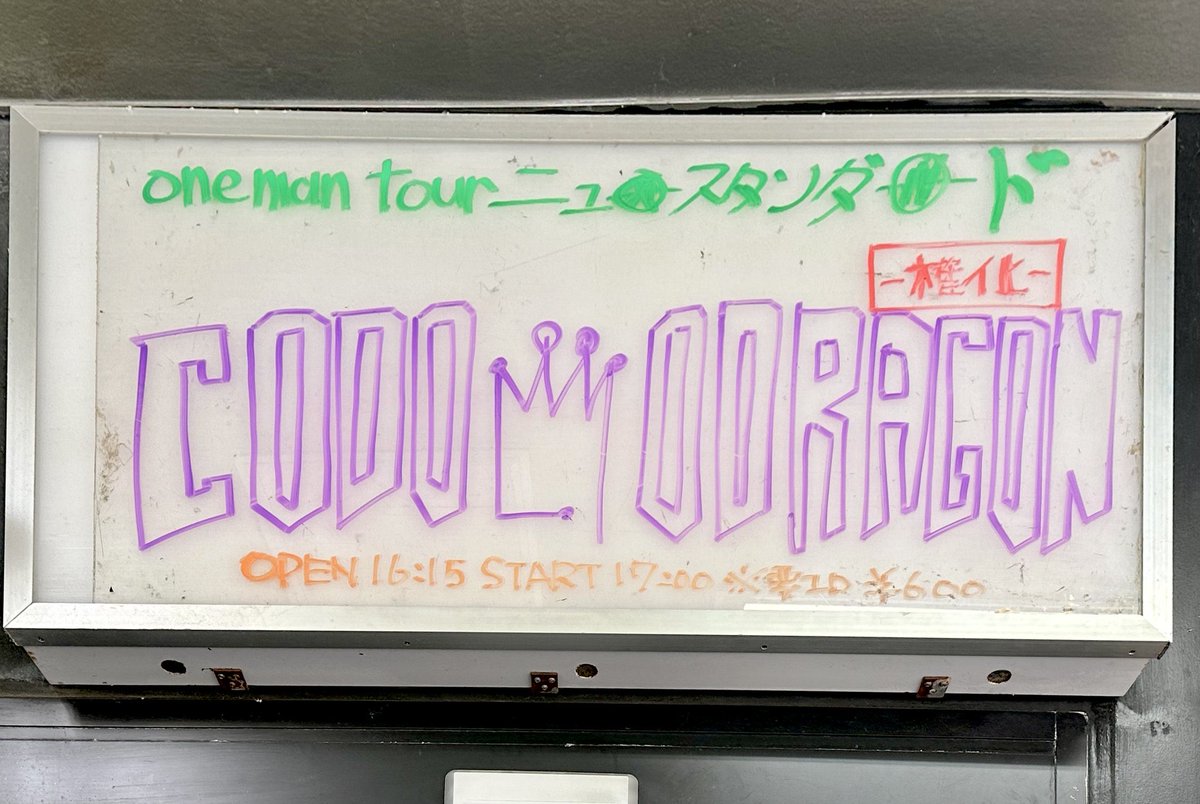 oneman tour ニュースタンダード
-権化-
CODOMO DRAGON
OPEN 16:15 START 17:00 ※要1D ¥600